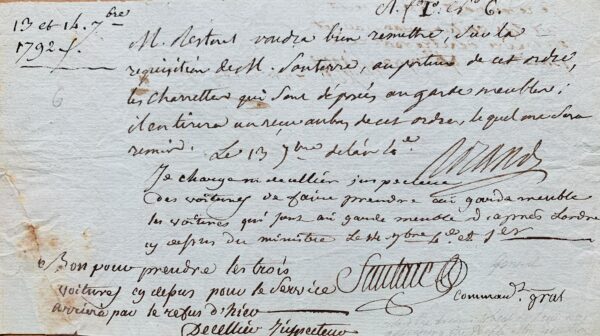 A. fo. 1o. no 6.
13 et 14. 7bre
1792
M. Restout voudra bien remettre, sur la
requisition de M. Santerre, au porteur de cet ordre,
les charrettes qui sont déposés au garde meuble;
il en tirera un reçu au bas de cet ordre, lequel me sera
remis. Le 13 7bre de l'an 4e.
Je charge m decellier inspecteur
des voitures de faire prendre au garde meuble
les voitures qui sont au garde meuble d'apres l'ordre
cy dessus du ministre le 14 7bre 4e et 1er
Bon pour prendre les trois
voitures cy dessus pour le service Santerre
commandt gral
arrivé par le refus d'hier
Decellier Inspecteur